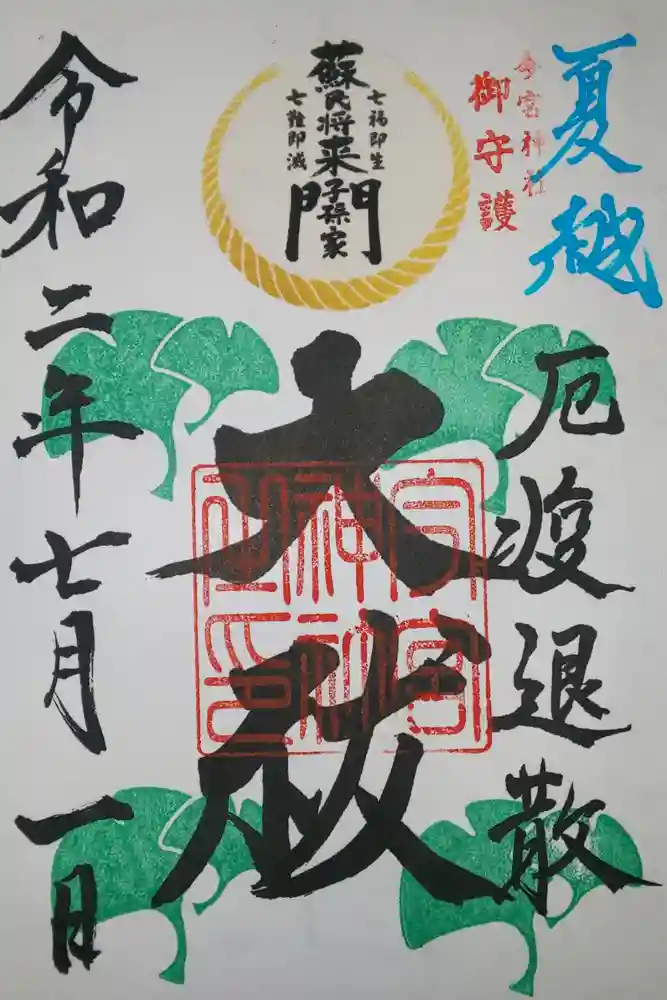 夏越
今宮神社
御守護
厄疫退散
七福即生
蘇民将来子孫家門
七難即滅
大祓
令和二年七月一日